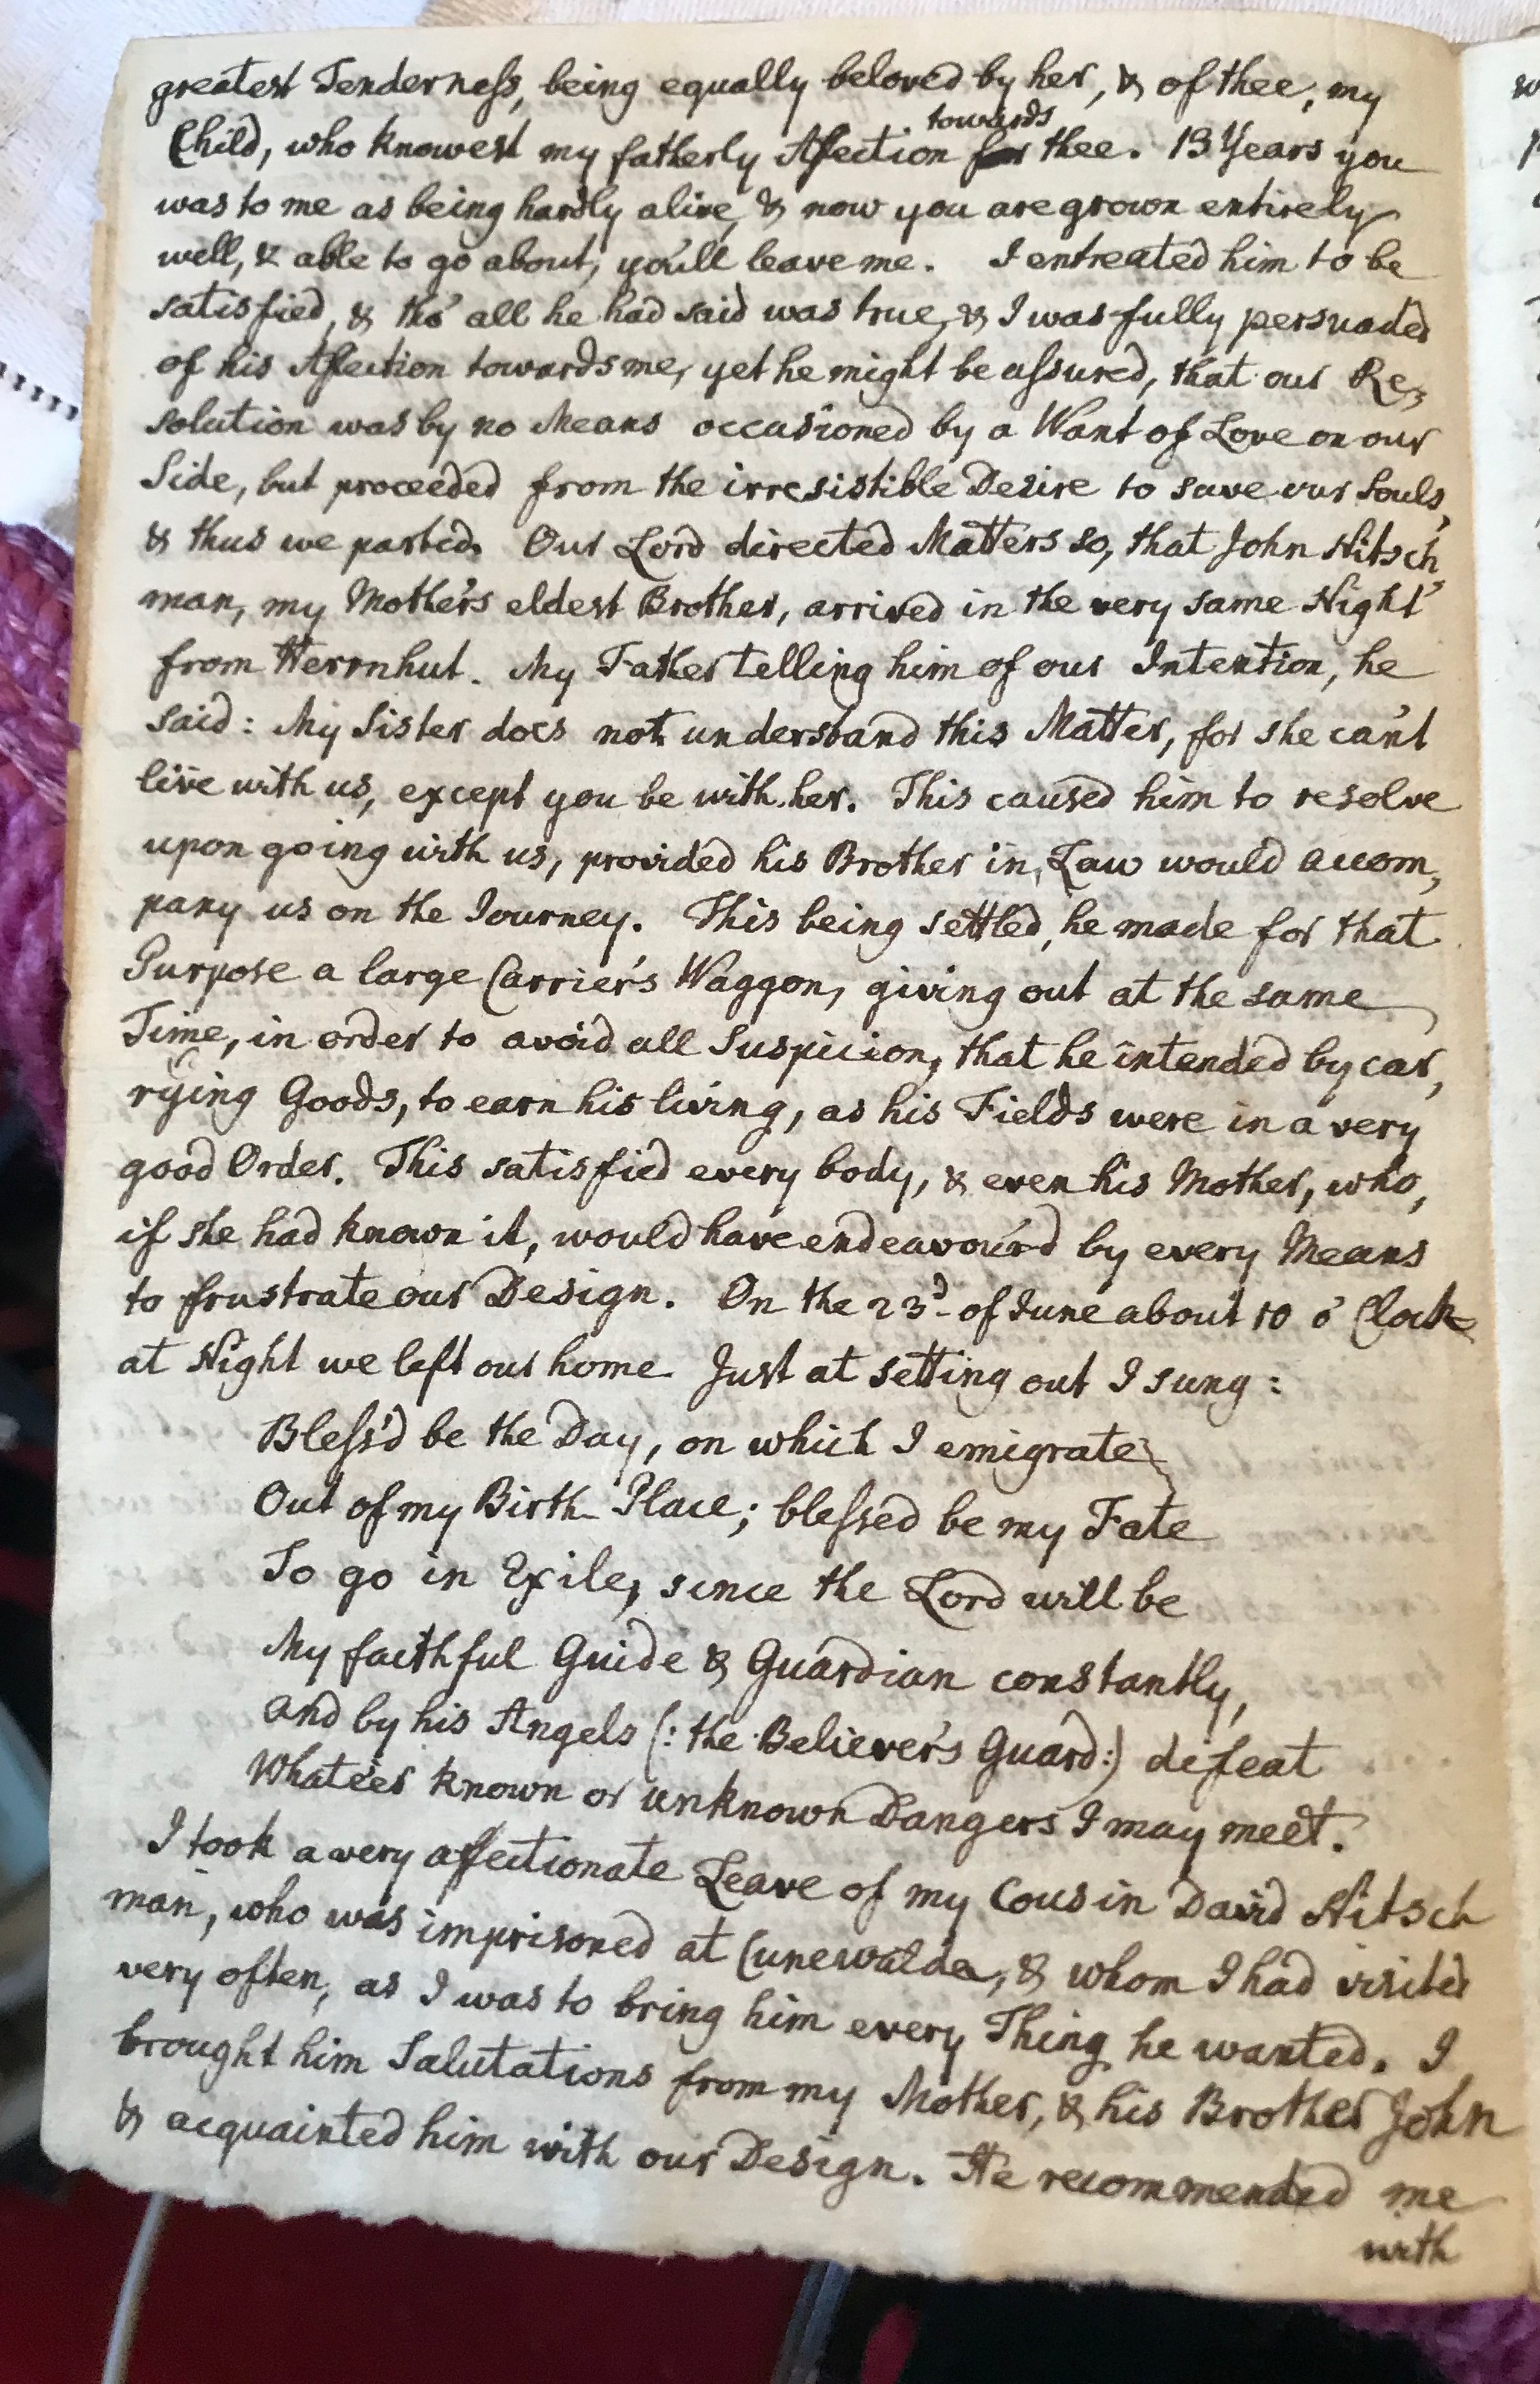 greatest Tenderneſs, being equally beloved by her, & of thee, my
towards
Child, who knowest my fatherly Affection for thee. 13 Years you
was to me as being hardly alive, & now you are grown entirely
well, & able to go about, you'll leave me. I entreated him to be
satisfied, & tho' all he had said was true, & I was fully persuaded
of his Affection towards me, yet he might be aſsured, that our Re,
solution was by no Means occasioned by a Want of Love on our
Side, but proceeded from the irresistible Desire to save our Souls,
& thus we parted. Our Lord directed Matters so, that John Nitsch
man, my Mother's eldest Brother, arrived in the very same Night
from Herrnhut. My Father telling him of our Intention, he
said: My Sister does not understand this Matter, for she can't
live with us, except you be with her. This caused him to resolve
upon going with us, provided his Brother in, Law would accom,
pany us on the Journey. This being settled, he made for that
Purpose a large Carrier's Waggon, giving out at the same
Time, in order to avoid all Suspicion, that he intended by car,
rying Goods, to earn his living, as his Fields were in a very
good Order. This satisfied every body, & even his Mother, who,
if she had known it, would have endeavour'd by every Means
to frustrate our Design. On the 23d of June about 10 o' Clock
at Night we left our home. Just at setting out I sung:
Bleſs'd be the Day, on which I emigrate
Out of my Birth-Place; bleſsed be my Fate
To go in Exile, since the Lord will be
My faithful Guide & Guardian constantly,
and by his Angels (: the Believer's Guard:) defeat
Whate'er known or unknown Dangers I may meet.
I took a very affectionate Leave of my Cousin David Nitsch
man, who was imprisoned at Cunewalde, & whom I had visited
very often, as I was to bring him every Thing he wanted. I
brought him Salutations from my Mother, & his Brother John
& acquainted him with our Design. He recommended me
with